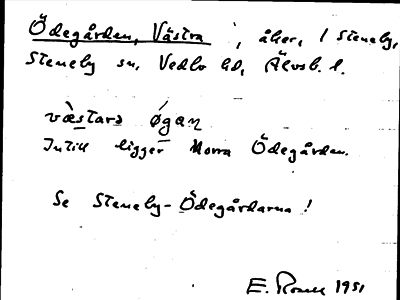 Ödegården, Västra, åker, i Steneby,
Steneby sn, Vedbo hd, Älvsb. l.
væ̀stara øgan
Intill ligger Norra Ödegården.
Se Steneby-Ödegårdarna!
E. 1951